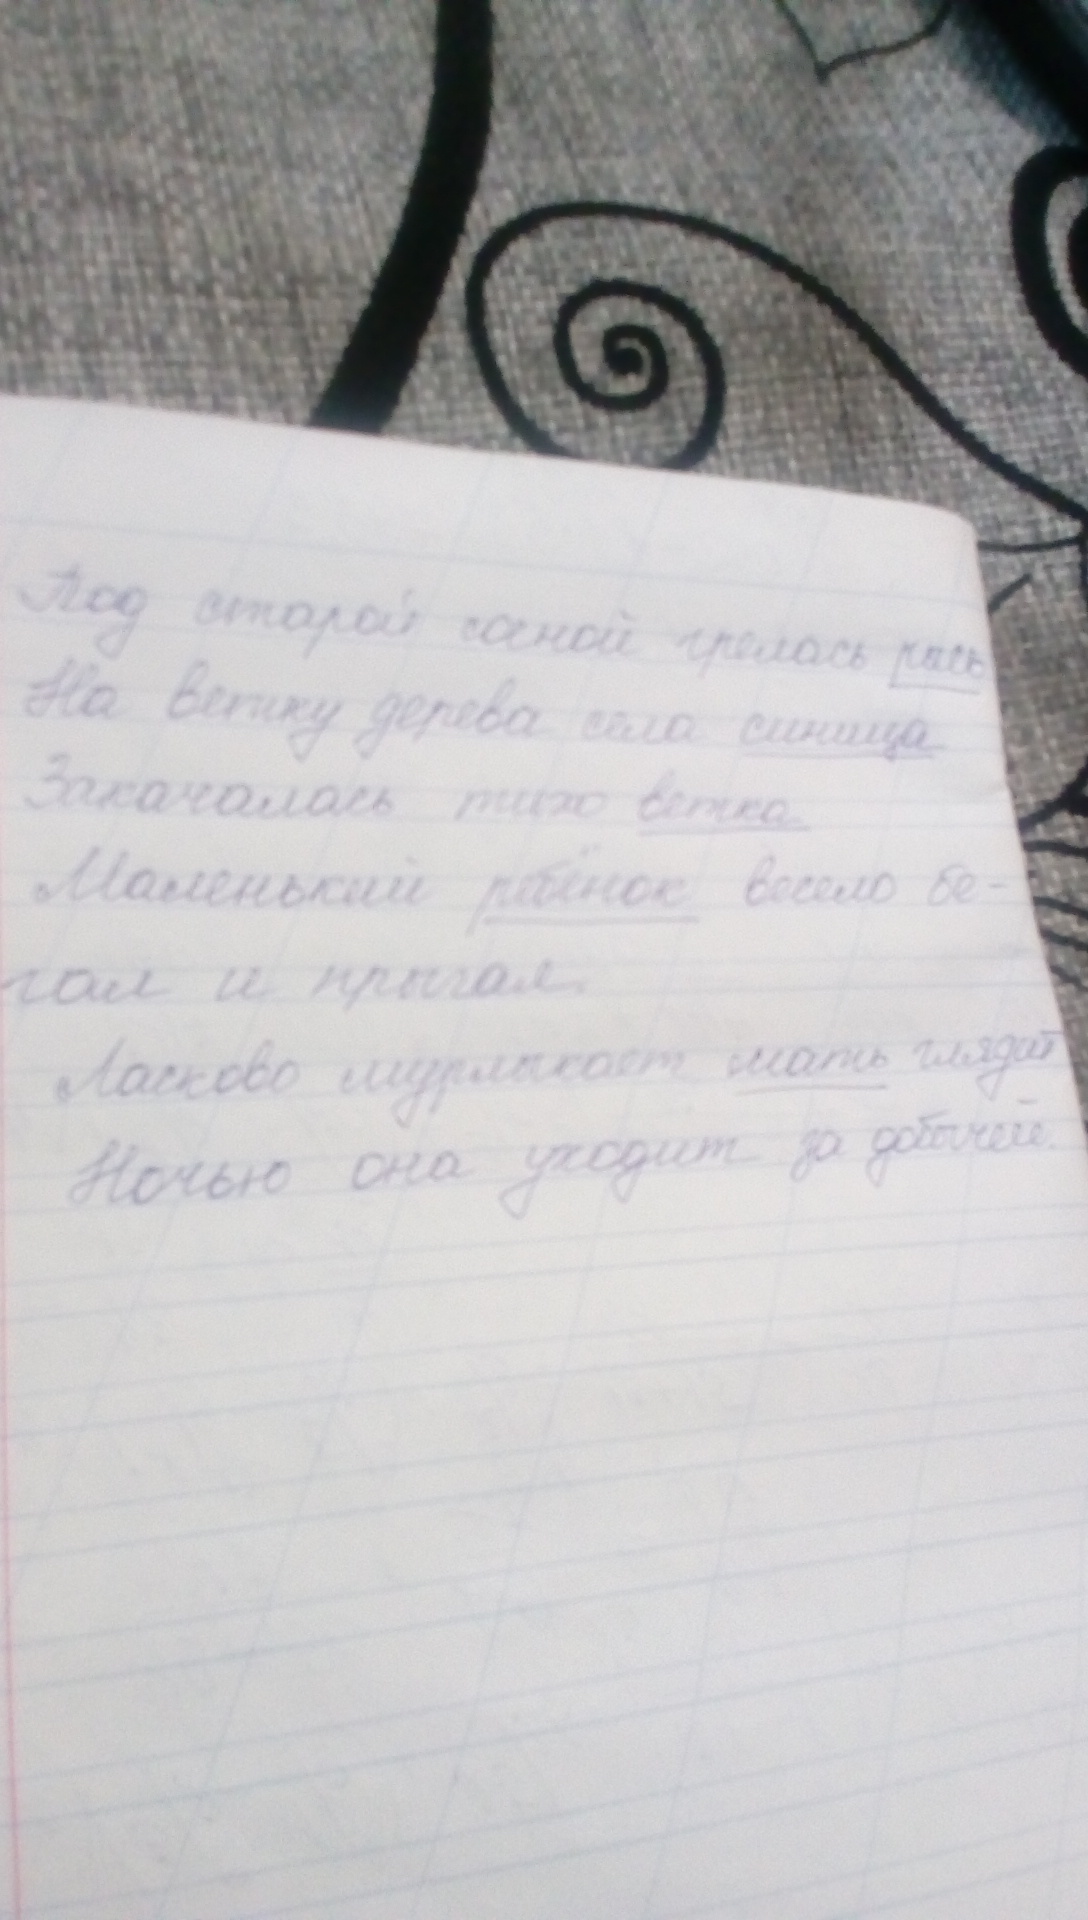 Под старой сосной грелась рысь
На ветку дерева села синица
Закачалась тихо ветка.
Маленький ребёнок весело бе-
гал и прыгал.
Ласково мурлыкает мать глядит
Ночью она уходит за добычей.